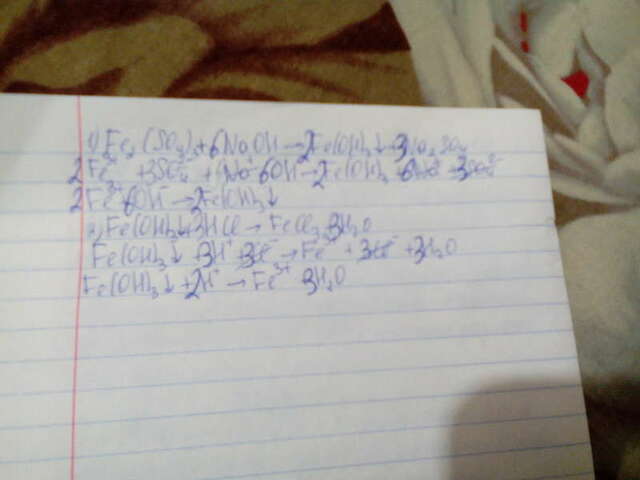 1) Fe₂(SO₄)₃+6NaOH→2Fe(OH)₃↓+3Na₂SO₄
2Fe³⁺+3SO₄²⁻+6Na⁺6OH⁻→2Fe(OH)₃+6Na⁺+3SO₄²⁻
2Fe³⁺6OH⁻→2Fe(OH)₃↓
2) Fe(OH)₃↓+3HCl→FeCl₃ 3H₂O
Fe(OH)₃↓+3H⁺ 3Cl⁻→Fe³⁺+3Cl⁻+3H₂O
Fe(OH)₃↓+2H⁺→Fe³⁺ 3H₂O